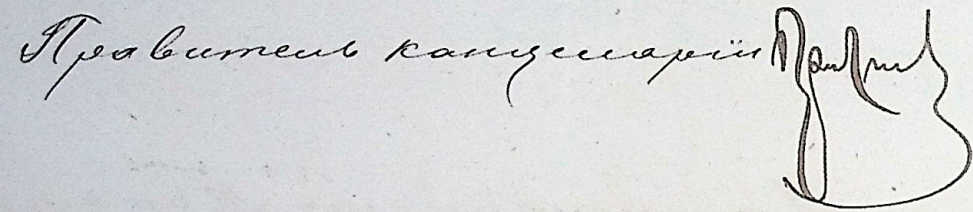 Правитель канцелярии